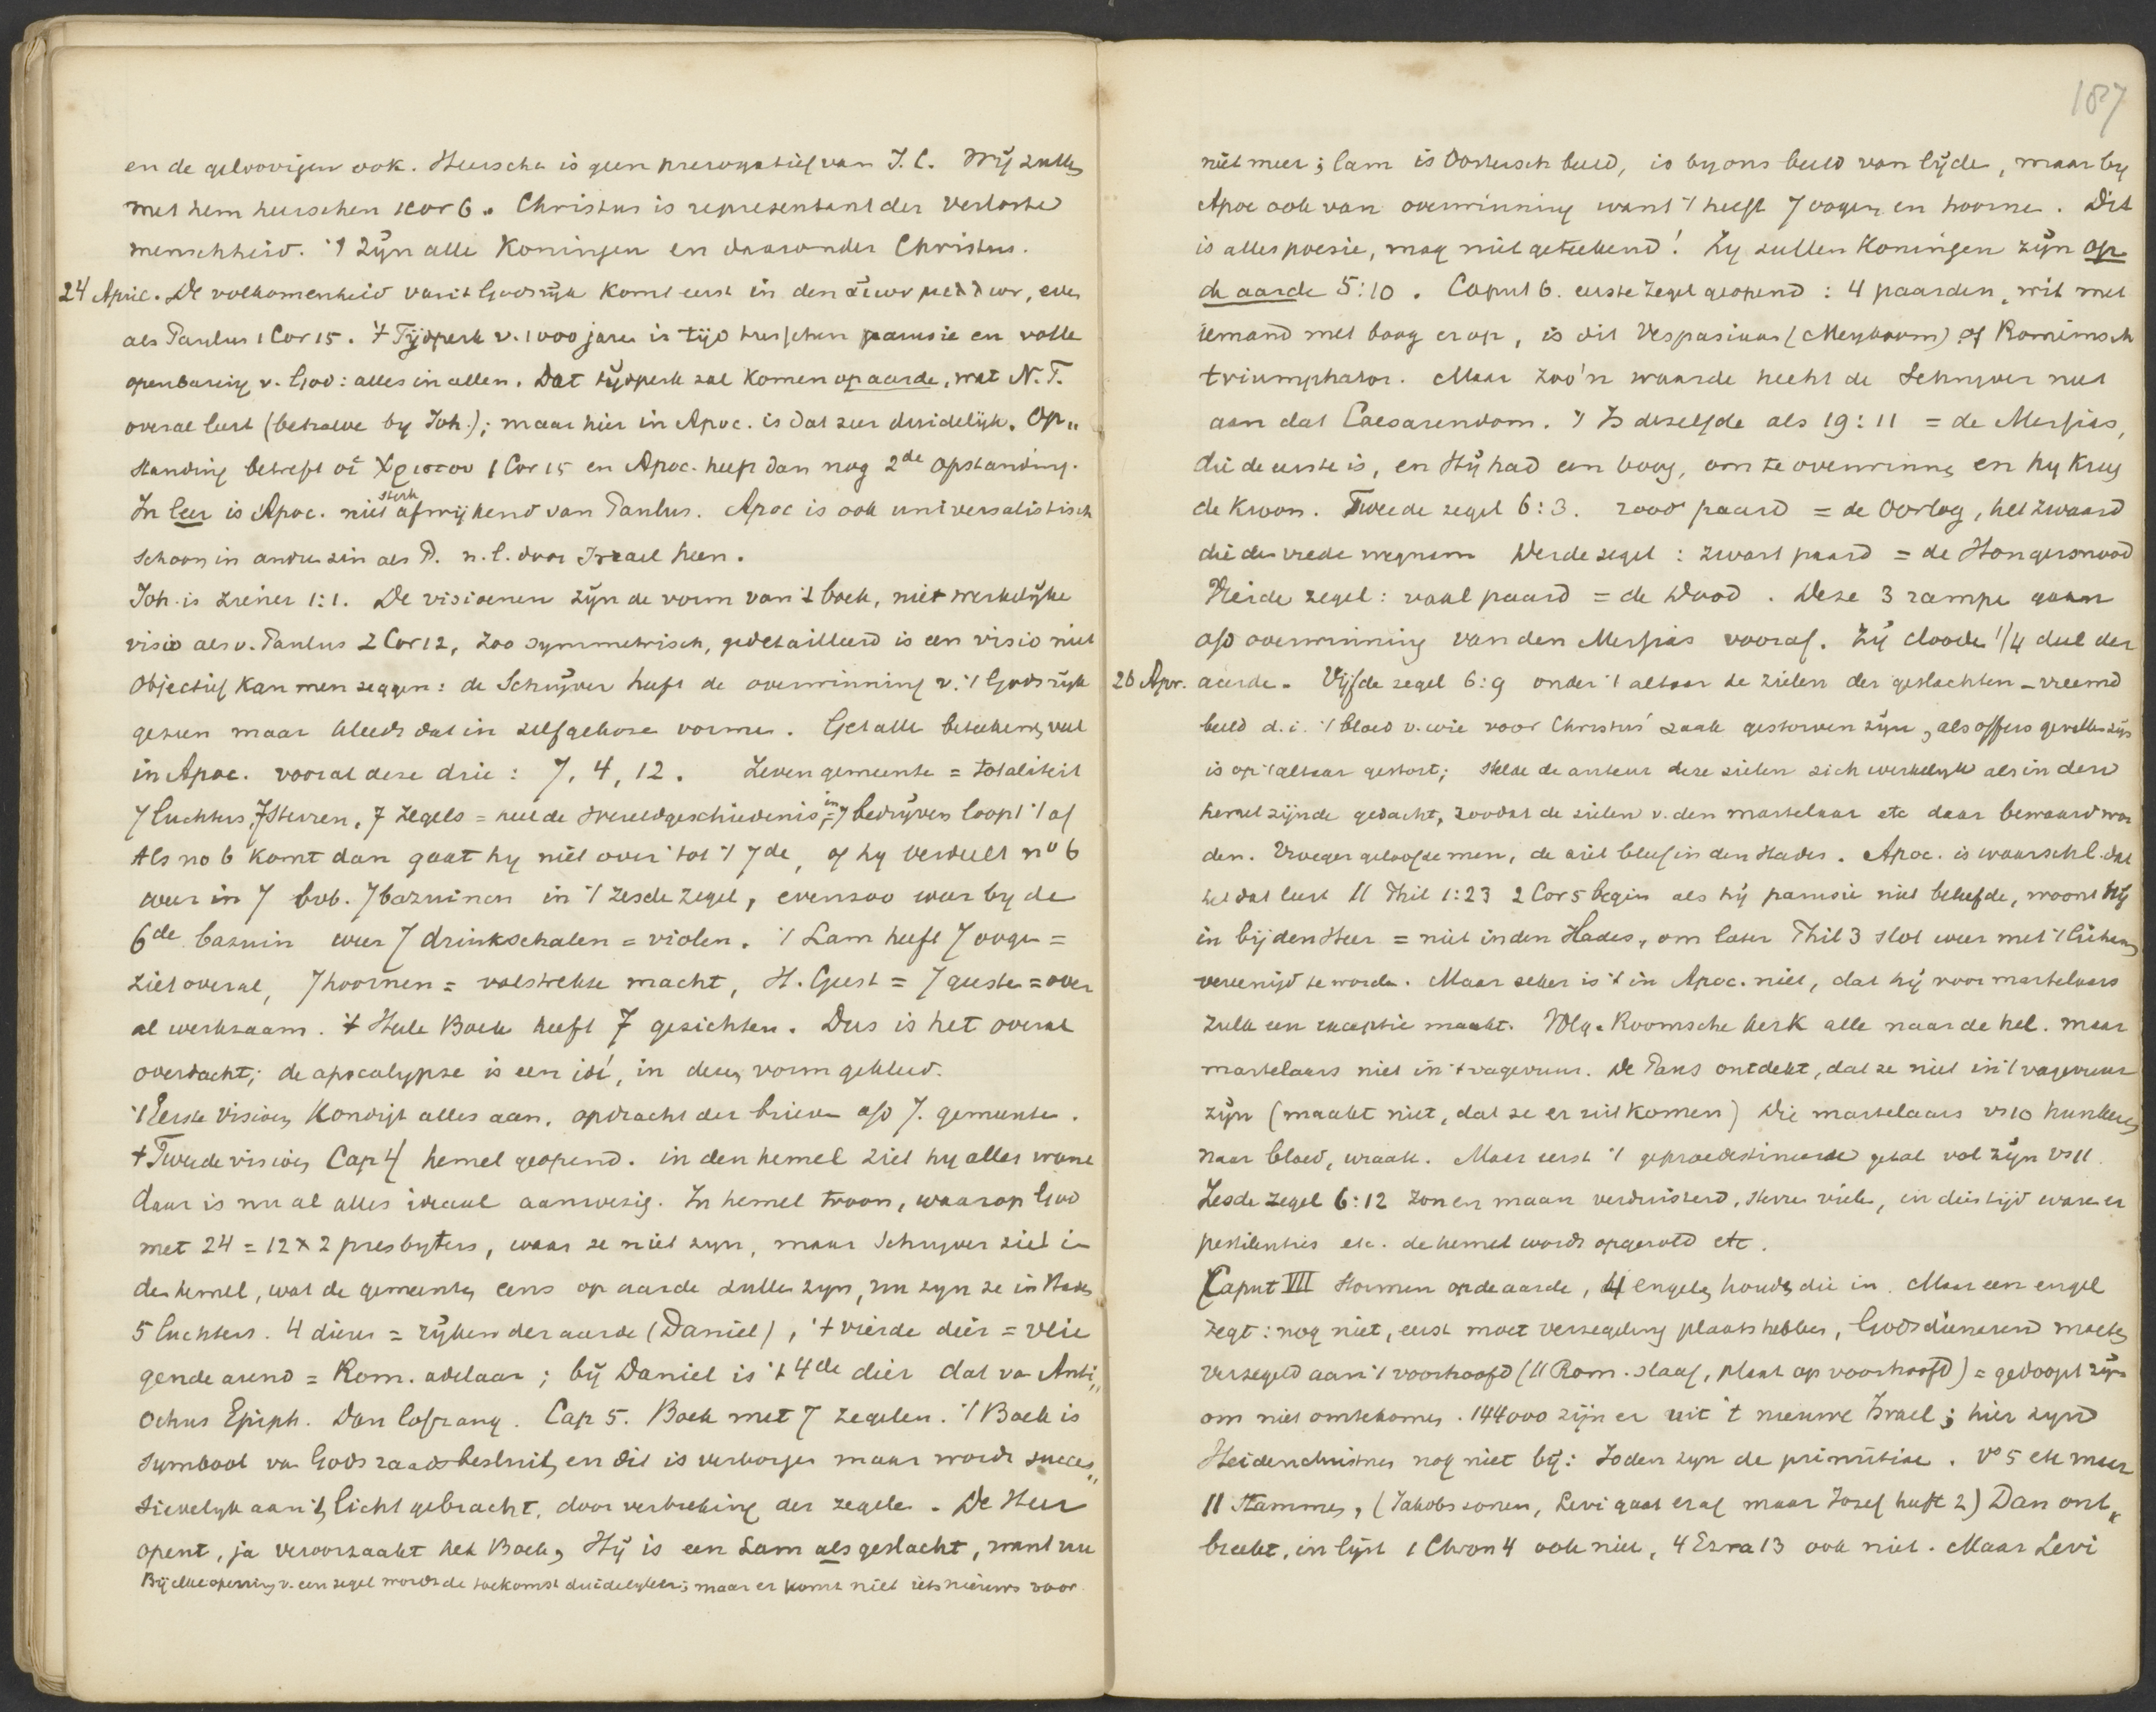 en de geloovigen ook. Heerschen is geen prerogatief van J. C. Wij zullen
met hem heerschen 1Cor 6. Christus is representant der verloste
menschheid. 't Zijn alle Koningen en daaronder Christus.
24 April. De volkomenheid van 't Godsrijk komt eerst in den αἰων μελλων, even
als Paulus 1 Cor 15. 't Tijdperk v. 1000 jaren is tijd tusschen parusie en volle
openbaring v. God: alles in allen. Dat tijdperk zal komen op aarde, wat N. T.
overal leert (behalve by Joh.); maar hier in Apoc. is dat zeer duidelijk. Op„
standing betreft οἱ Χριστου 1 Cor 15 en Apoc. heeft dan nog 2de opstanding.
In leer is Apoc. niet sterk afwijkend van Paulus. Apoc is ook universalistisch
schoon in andere zin als P. n.l. door Israel heen.
Joh. is ziener 1:1. De visioenen zijn de vorm van 't boek, niet werkelijke
visio als v. Paulus 2 Cor 12, zoo symmetrisch, gedetailleerd is een visio niet
Objectief kan men zeggen: de Schrijver heeft de overwinning v. 't Godsrijk
gezien maar kleedt dat in zelfgekozen vormen. Getallen beteekenen veel
in Apoc. vooral deze drie: 7, 4, 12. Zeven gemeenten = totaliteit
7 luchters, 7 sterren, 7 zegels = heel de wereldgeschiedenis, in 7 bedrijven loopt 't af
Als no 6 komt dan gaat hy niet over tot 't 7de, of hy verdeelt no 6
weer in 7 bvb. 7 bazuinen in 't zesde zegel, evenzoo weer by de
6de bazuin weer 7 drinkschalen = violen. 't Lam heeft 7 oogen =
ziet overal, 7 hoornen = volstrekte macht, H. Geest = 7 geesten = over
al werkzaam. 't Hele Boek heeft 7 gezichten. Dus is het overal
overdacht; de apocalypse is een idé, in deze vorm gekleed.
't Eerste visioen Kondigt alles aan. opdracht der brieven a/d 7. gemeenten.
't Tweede visioen Cap 4 hemel geopend. in den hemel ziet hy alles want
daar is nu al alles ideaal aanwezig. In hemel troon, waarop God
met 24 = 12 x 2 presbyters, waar ze niet zyn, maar Schryver ziet in
den hemel, wat de gemeenten eens op aarde zullen zyn, nu zyn ze in Hades
5 luchters. 4 dieren = rijken der aarde (Daniel), 't vierde dier = vlie
gende arend = Rom. adelaar; bij Daniel is 't 4de dier dat van Anti„
ochus Epiph. Dan lofzang. Cap 5. Boek met 7 zegelen. 't Boek is
symbool van Gods raadsbesluit, en dit is verborgen maar wordt succes„
sievelyk aan 't licht gebracht, door verbreking der zegelen. De Heer
opent, ja veroorzaakt het Boek, Hij is een Lam als geslacht, want nu
Bij elke opening v. een zegel wordt de toekomst duidelyker; maar er komt niet iets nieuws voor
187
niet meer; lam is Oostersch beeld, is by ons beeld van lijden, maar by
Apoc ook van overwinning want 't heeft 7 oogen en hoornen. Dit
is alles poesie, mag niet geteekend! Zy zullen Koningen zijn op
de aarde 5:10. Caput 6. eerste zegel geopend: 4 paarden, wit met
iemand met boog erop, is dit Vespasianus (Meyboom) of Romeinsch
triumphator. Maar zoo'n waarde hecht de Schryver niet
aan dat Caesarendom. 't Is dezelfde als 19:11 = de Messias,
die de eerste is, en Hij had een boog, om te overwinnen en hy kreeg
de kroon. Tweede zegel 6:3. rood paard = de Oorlog, het zwaard
die de vrede wegnam Derde zegel: zwart paard = de Hongersnood
Vierde zegel: vaal paard = de Dood. Deze 3 rampen gaan
a/d overwinning van den Messias vooraf. Zij dooden 1/4 deel der
26 Apr. aarde. Vijfde zegel 6:9 onder 't altaar de zielen der geslachten – vreemd
beeld d.i. 't bloed v. wie voor Christus' zaak gestorven zijn, als offers gevallen zijn
is op 't altaar gestort; stelde de auteur deze zielen zich werkelyk als in den
hemel zijnde gedacht, zoodat de zielen v. den martelaar etc daar bewaard wor
den. Vroeger geloofde men, de ziel bleef in den Hades. Apoc. is waarschl. dat
het dat leert 11 Phil 1:23 2 Cor 5 begin als hij parusie niet beleefde, woont hij
in bij den Heer = niet in den Hades, om later Phil 3 slot weer met 't lichaam
vereenigd te worden. Maar zeker is 't in Apoc. niet, dat hij voor martelaars
zulk een exceptie maakt. Volg. Roomsche kerk alle naar de hel. maar
martelaars niet in 't vagevuur. De Paus ontdekt, dat ze niet in 't vagevuur
zijn (maakt niet, dat ze er uit komen) Die martelaars vs 10 hunkeren
naar bloed, wraak. Maar eerst 't gepraedestineerde getal vol zijn vs 11.
Zesde zegel 6:12 Zon en maan verduisterd, sterren vielen, in dien tijd waren er
pestilenties etc. de hemel wordt opgerold etc.
Caput VII Stormen op de aarde, 4 engelen houden die in. Maar een engel
zegt: nog niet, eerst moet verzegeling plaats hebben, Gods dienaren moeten
verzegeld aan 't voorhoofd (11 Rom. slaaf, plaat op voorhoofd) = gedoopt zijn
om niet omtekomen. 144000 zijn er uit 't nieuwe Israel; hier zynd
Heidenchristenen nog niet bij: Joden zyn de primitiae. Vs 5 etc meer
11 Stammen, (Jakobs zonen, Levi gaat eraf maar Jozef heeft 2) Dan ont„
breekt, in lijst 1 Chron 4 ook niet, 4 Ezra 13 ook niet. Maar Levi